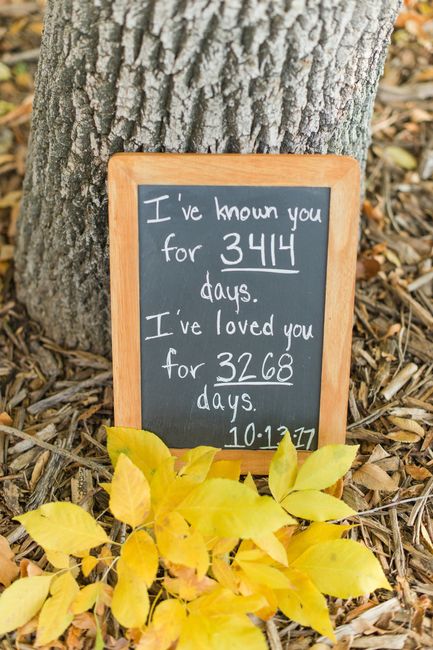 I've known you
for 3414
days.
I've loved you
for 3268
days.
10.13.17